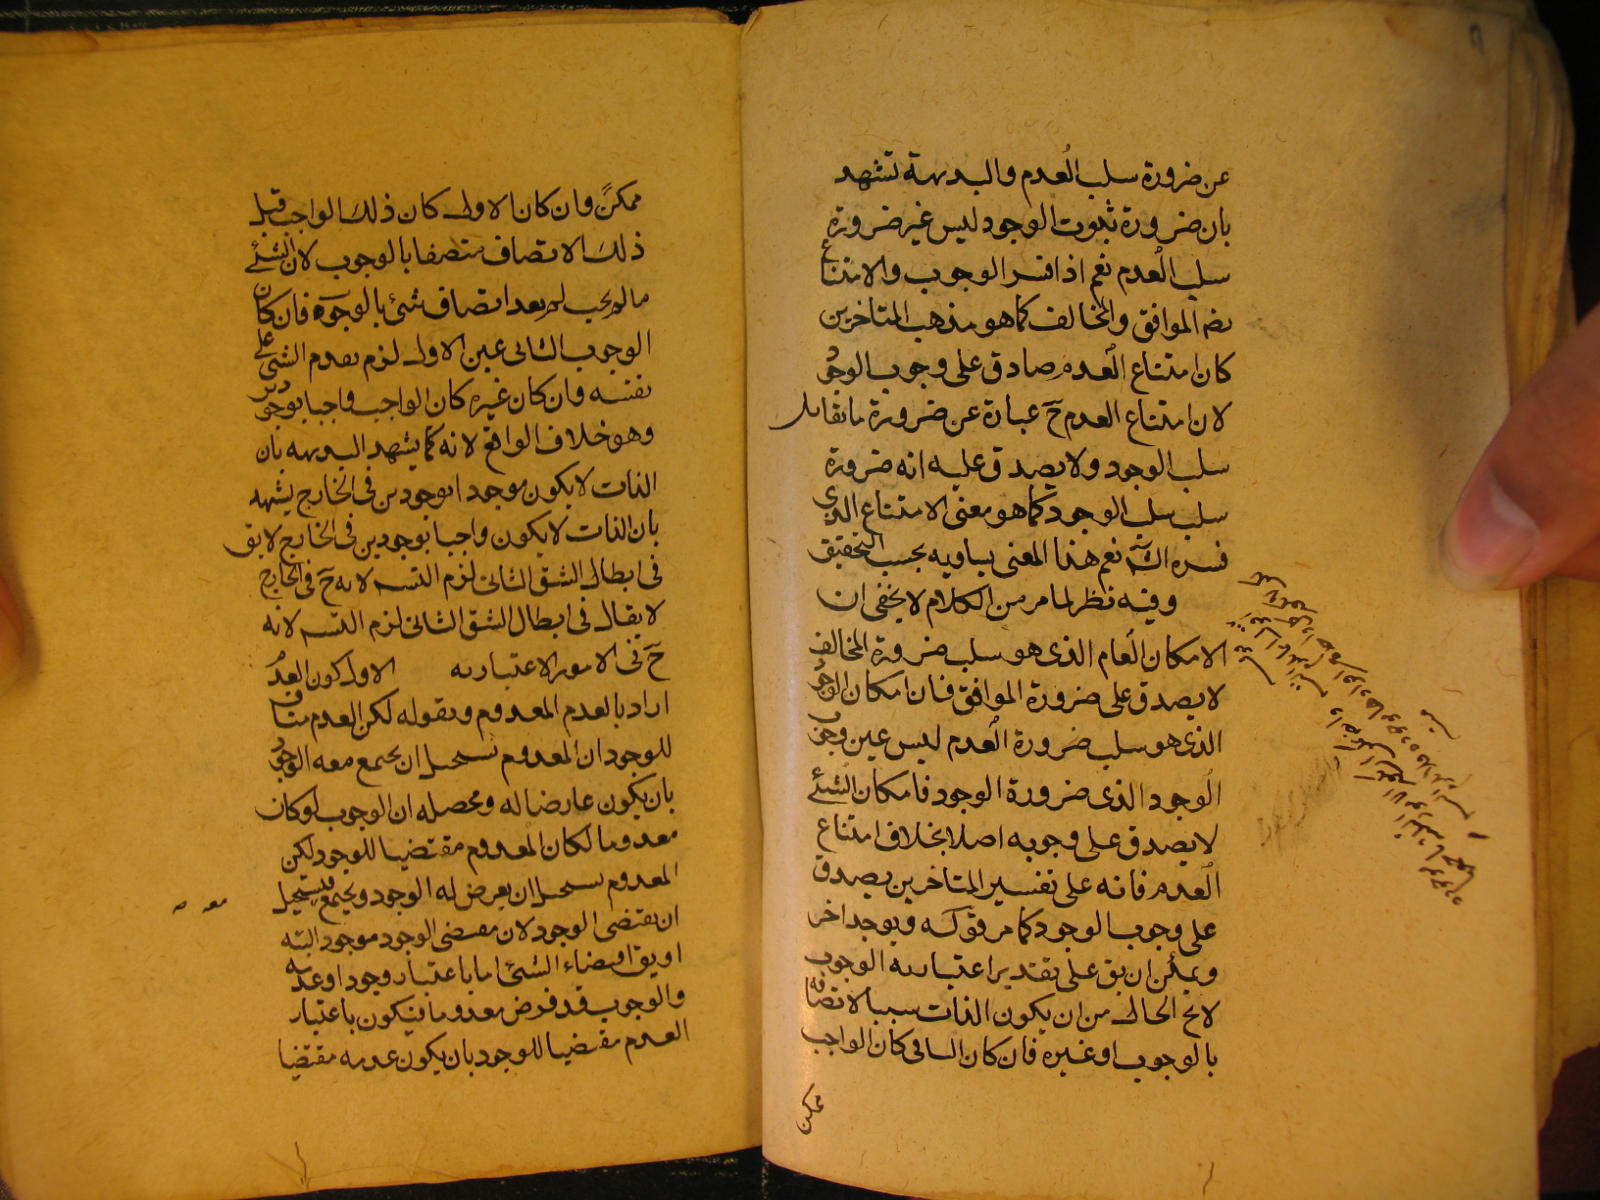 عن ضرورة سلب العدم والبديهة تشهد
بان ضرورة ثبوت الوجود ليس غير ضرورة
سلب العدم نعم اذا فسر الوجوب والامتناع
بضم الموافق والمخالف كما هو مذهب المتاخرين
كان امتناع العدم صادق على وجوب الوجود
لان امتناع العدم ح عبارة عن ضرورة ما تقابل
سلب الوجود ولا يصدق عليه انه ضرورة
سلب سلب الوجود كما هو معنى الامتناع الذى
فسره الش نعم هذا المعنى يساويه بحسب التحقيق
وفيه نظر لما مر من الكلام لا يخفى ان
الامكان العام الذى هو سلب ضرورة المخالف
لا يصدق على ضرورة الموافق فان امكان الوجود
الذى هو سلب ضرورة العدم ليس عين وجوب
الوجود الذى ضرورة الوجود فامكان الشئ
لا يصدق على وجوبه اصلا بخلاف امتناع
العدم فانه على تفسير المتاخرين يصدق
على وجوب الوجود كما مر قوله ويوجد اخر
ويمكن ان يق على تقدير اعتبارية الوجوب
لا يخ الحال من ان يكون الذات سببا لاتصافه
بالوجوب او غيره فان كان الثانى كان الواجب
ممكن
ممكن وان كان الاول كان ذلك الواجب قبل
ذلك الاتصاف متصفا بالوجوب لان الشئ
ما لم يجب لم يعد اتصاف شئ بالوجوه فان كان
الوجوب الثانى عين الاول لزم تقدم الشئ على
نفسه وان كان غيره كان الواجب واجبا بوجودين
وهو خلاف الواقع لانه كما يشهد البديهه بان
الذات لا يكون موجودا بوجودين فى الخارج يشهد
بان الذات لا يكون واجبا بوجودين فى الخارج لا يق
فى ابطال الشق الثانى لزم التسم لانه ح فى الخارج
لا يقال فى ابطال الشق الثانى لزم التسم لانه
ح فى الامور الاعتباريه الاول كون العدم
اراد بالعدم المعدوم وبقوله لكن العدم مناف
للوجود ان المعدوم يستحيل ان يجتمع معه الوجود
بان يكون عارضا له ومحصله ان الوجوب لو كان
معدوما لكان المعدوم مقتضيا للوجود لكن
المعدوم يستحيل ان يعرض له الوجود ويجتمع فيستحيل
معه صه
ان يقتضى الوجود لان مقتضى الوجود موجود البته
او يق اقتضاء الشئ اما باعتبار وجود او عدمه
والوجوب قد فرض معدوما فيكون باعتبار
العدم مقتضيا للوجود بان يكون عدمه مقتضيا